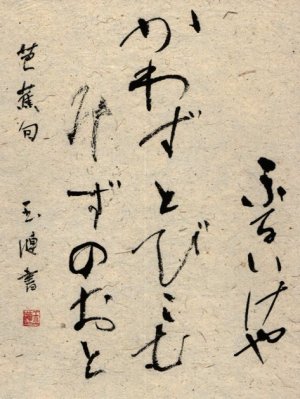 ふるいけや
かわずとびこむ
みずのおと
芭蕉句
玉 書